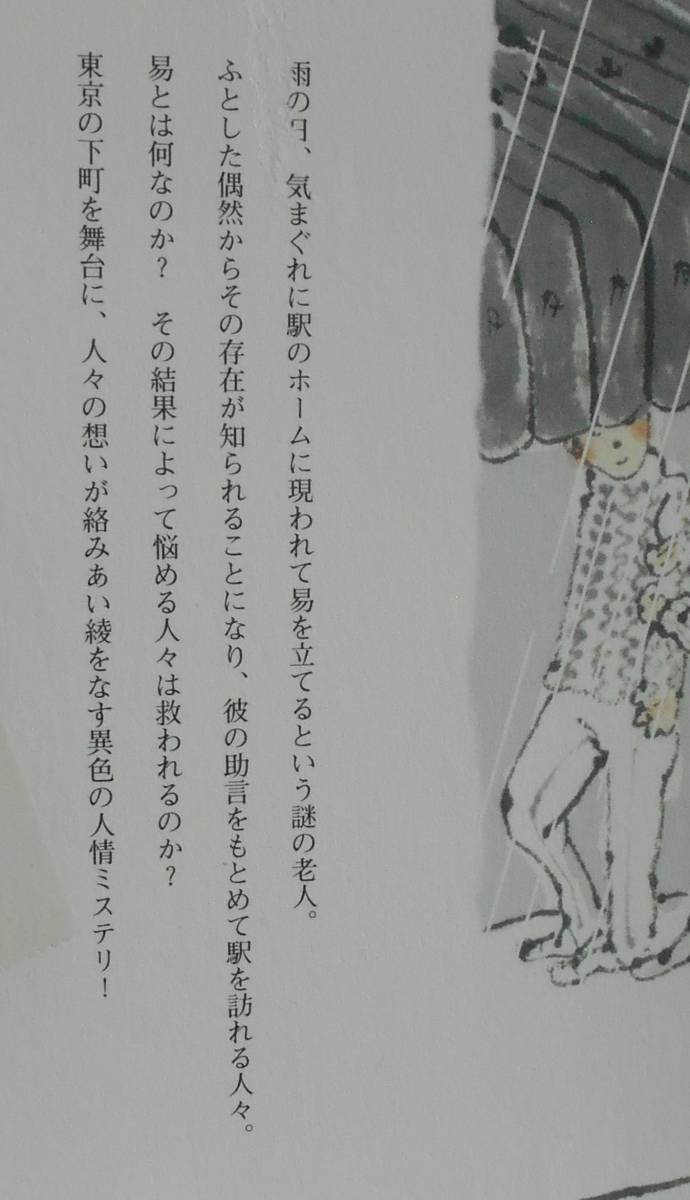 雨の日、気まぐれに駅のホームに現われて易を立てるという謎の老人。
ふとした偶然からその存在が知られることになり、彼の助言をもとめて駅を訪れる人々。
易とは何なのか？　その結果によって悩める人々は救われるのか？
東京の下町を舞台に、人々の想いが絡みあい綾をなす異色の人情ミステリ！